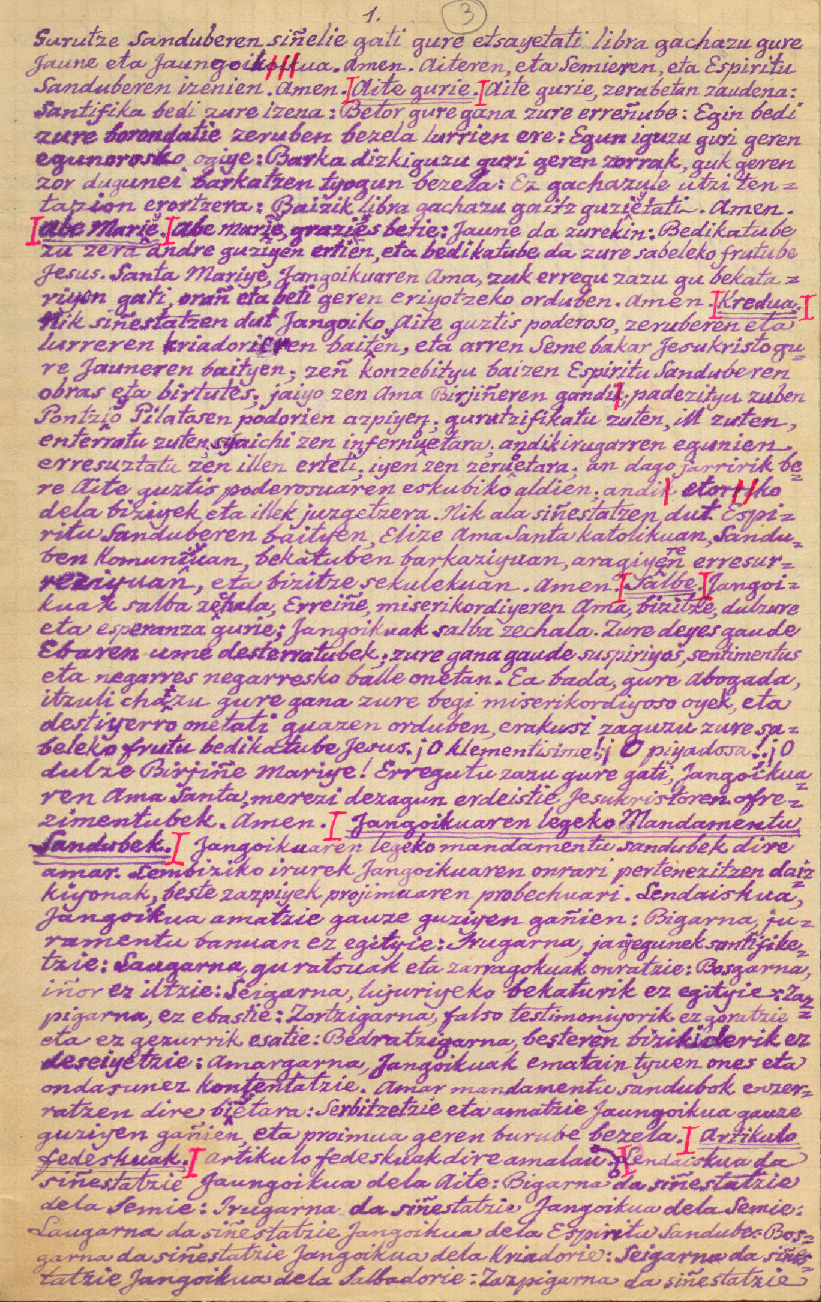 1. 3
Gurutze Sanduberen siñelie gati gure etsayetati libra gachazu gure
Jaune eta Jaungoikua. Amen. Aiteren, eta Semieren, eta Espiritu
Sanduberen izenien. Amen. Aite gurie. Aite gurie, zerubetan zaudena:
Santifika bedi zure izena: Betor gure gana zure erreñube: Egin bedi
zure borondatie zeruben bezela lurrien ere: Egun iguzu guri geren
egunorosko ogiye: Barka dizkiguzu guri geren zorrak, guk geren
zor dugunei barkatzen tyogun bezela: Ez gachazule utzi ten=
tazion erortzera: Baizik libra gachazu gaitz guziẽtati. Amen.
Abe Marie. Abe marie, graziẽs betie: Jaune da zurekin: Bedikatube
zu zera andre guziyen ertien, eta bedikatube da zure sabeleko frutube
Jesus. Santa Mariye, Jangoikuaren Ama, zuk erregu zazu gu bekata =
riyen gati, orañ eta beti geren eriyotzeko orduben. Amen. Kredua.
Nik siñestatzen dut Jangoiko Aite guztis poderoso, zeruberen eta
lurreren kriadorieren baiten, eta arren Seme bakar Jesukristo gu=
re Jauneren baityen; zeñ konzebityu baizen Espiritu Sanduberen
obras eta birtutes; jaiyo zen Ama Birjiñeren gandi; padezityu zuben
Pontzio Pilatosen podorien azpiyen; gurutzifikatu zuten, il zuten,
enterratu zuten, jaichi zen inferniyetara, andik irugarren egunien
erresuztatu zen illen erteti; iyen zen zeruetara; an dago jarririk be=
re Aite, guztis poderosuaren eskubiko aldien; andi etorriko
dela biziyek eta illek juzgetzera. Nik ala siñestatzen dut Espi=
ritu Sanduberen baityen, Elize Ama Santa katolikuan, Sandu=
ben Komuniuan, bekatuben barkaziyuan, aragiyen re erresur=
reziyuan, eta bizitze sekulekuan. Amen. Salbe. Jangoi=
kuak salba zẽhala, Erreiñe, miserikordiyeren Ama, bizitze, dulzure
eta esperanza gurie; Jangoikuak salba zechala. Zure deyes gaude
Ebaren ume desterratubek; zure gana gaude suspiriyos, sentimentus
eta negarres negarresko balle onetan. Ea bada, gure Abogada,
itzuli chatzu gure gana zure begi miserikordiyoso oyek, eta
destiyerro onetati guazen orduben, erakusi zaguzu zure sa=
beleko frutu bedikatube Jesus. ¡O klementisime! ¡O piyadosa! ¡O
dulze Birjiñe Mariye! Erregutu zazu gure gati, Jangoikua
ren Ama Santa, merezi dezagun erdeistie Jesukristoren ofre=
zimentubek. Amen. Jangoikuaren legeko Mandamentu
Sandubek. Jangoikuaren legeko mandamentu sandubek dire
amar. Lembiziko irurek Jangoikuaren onrari pertenezitzen daiz=
kiyonak, beste zazpiyek projimuaren probechuari. Lendaiskua,
Jangoikua amatzie gauze guziyen gañien: Bigarna, ju=
ramentu banuan ez egityie: Irugarna, jayegunek santifike=
tzie: Laugarna, guratsuak eta zarragokuak onratzie: Bosgarna,
iñor ez iltzie: Seigarna, lujuriyeko bekaturik ez egityie: Zaz=
pigarna, ez ebastie: Zortzigarna, falso testimoniyorik ez goratzie
eta ez gezurrik esatie: Bedratzigarna, besteren bizikiderik ez
deseiyetzie: Amargarna, Jangoikuak ematain tyuen ones eta
ondasunez kontentatzie. Amar mandamentu sandubok enzer=
ratzen dire biẽtara: Serbitzetzie eta amatzie Jaungoikua gauze
guziyen gañien, eta proimua geren burube bezela. Artikulo
fedeskuak. Artikulo fedeskuak dire amalau. Lendaiskua da
siñestatzie Jaungoikua dela Aite: Bigarna da siñestatzie
dela Semie: Irugarna da siñestatzie Jangoikua dela Semie:
Laugarna da siñestatzie Jangoikua dela Espiritu Sandube: Bos=
garna da siñestatzie Jangoikua dela Kriadorie: Seigarna da siñes=
tatzie Jangoikua dela Salbadorie: Zazpigarna da siñestatzie